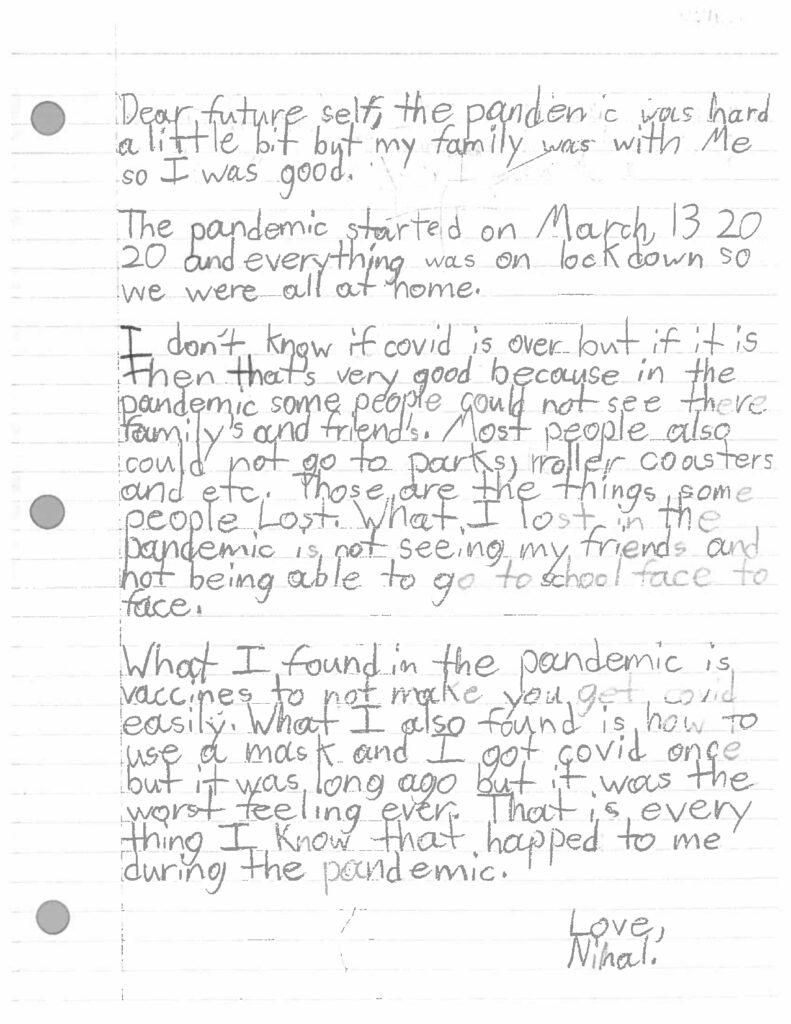 Dear future self, the pandemic was hard
a little bit but my family was with Me
so I was good.
The pandemic started on March, 13 20
20 and everything was on lockdown so
we were all at home.
I don't know if covid is over but if it is
then that's very good because in the
pandemic some people could not see there
family's and friend's. Most people also
could not go to parks, rroller coasters
and etc. Those are the things some
people Lost. What I lost in the
pandemic is not seeing my friends and
not being able to go to school face to
face.
What I found in the pandemic is
vaccines to not make you get covid
easily. What I also found is how to
use a mask and I got covid once
but it was long ago but it was the
worst feeling ever. That is every
thing I know that happed to me
during the pandemic.
Love,
Nihal.